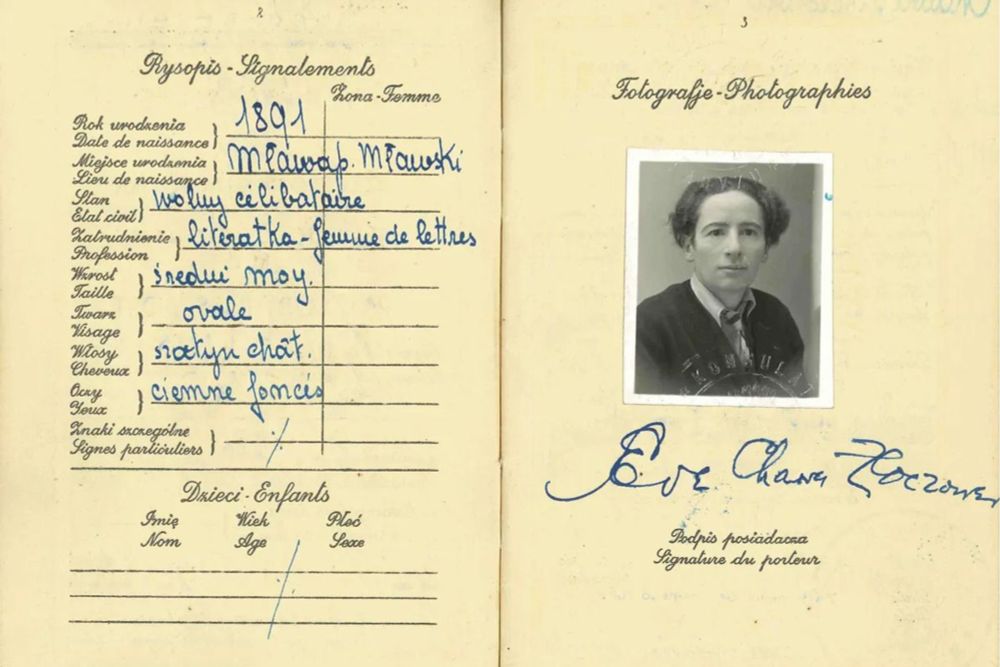 2
Rysopis - Signalements
Żona - Femme
Rok urodzenia
Date de naissance
1891
Miejsce urodzenia
Lieu de naissance
Mława p. Mławski
Stan
Etat civil
wolny célibataire
Zatrudnienie
Profession
literatka - femme de lettres
Wzrost
Taille
średni moy.
Twarz
Visage
ovale
Włosy
Cheveux
szatyn chât.
Oczy
Yeux
ciemne foncés
Znaki szczególne
Signes particuliers
Dzieci - Enfants
Imię Wiek Płeć
Nom Age Sexe
3
Fotografje - Photographies
KONSULAT
Eve Chawa Złoczower
Podpis posiadacza
Signature du porteur